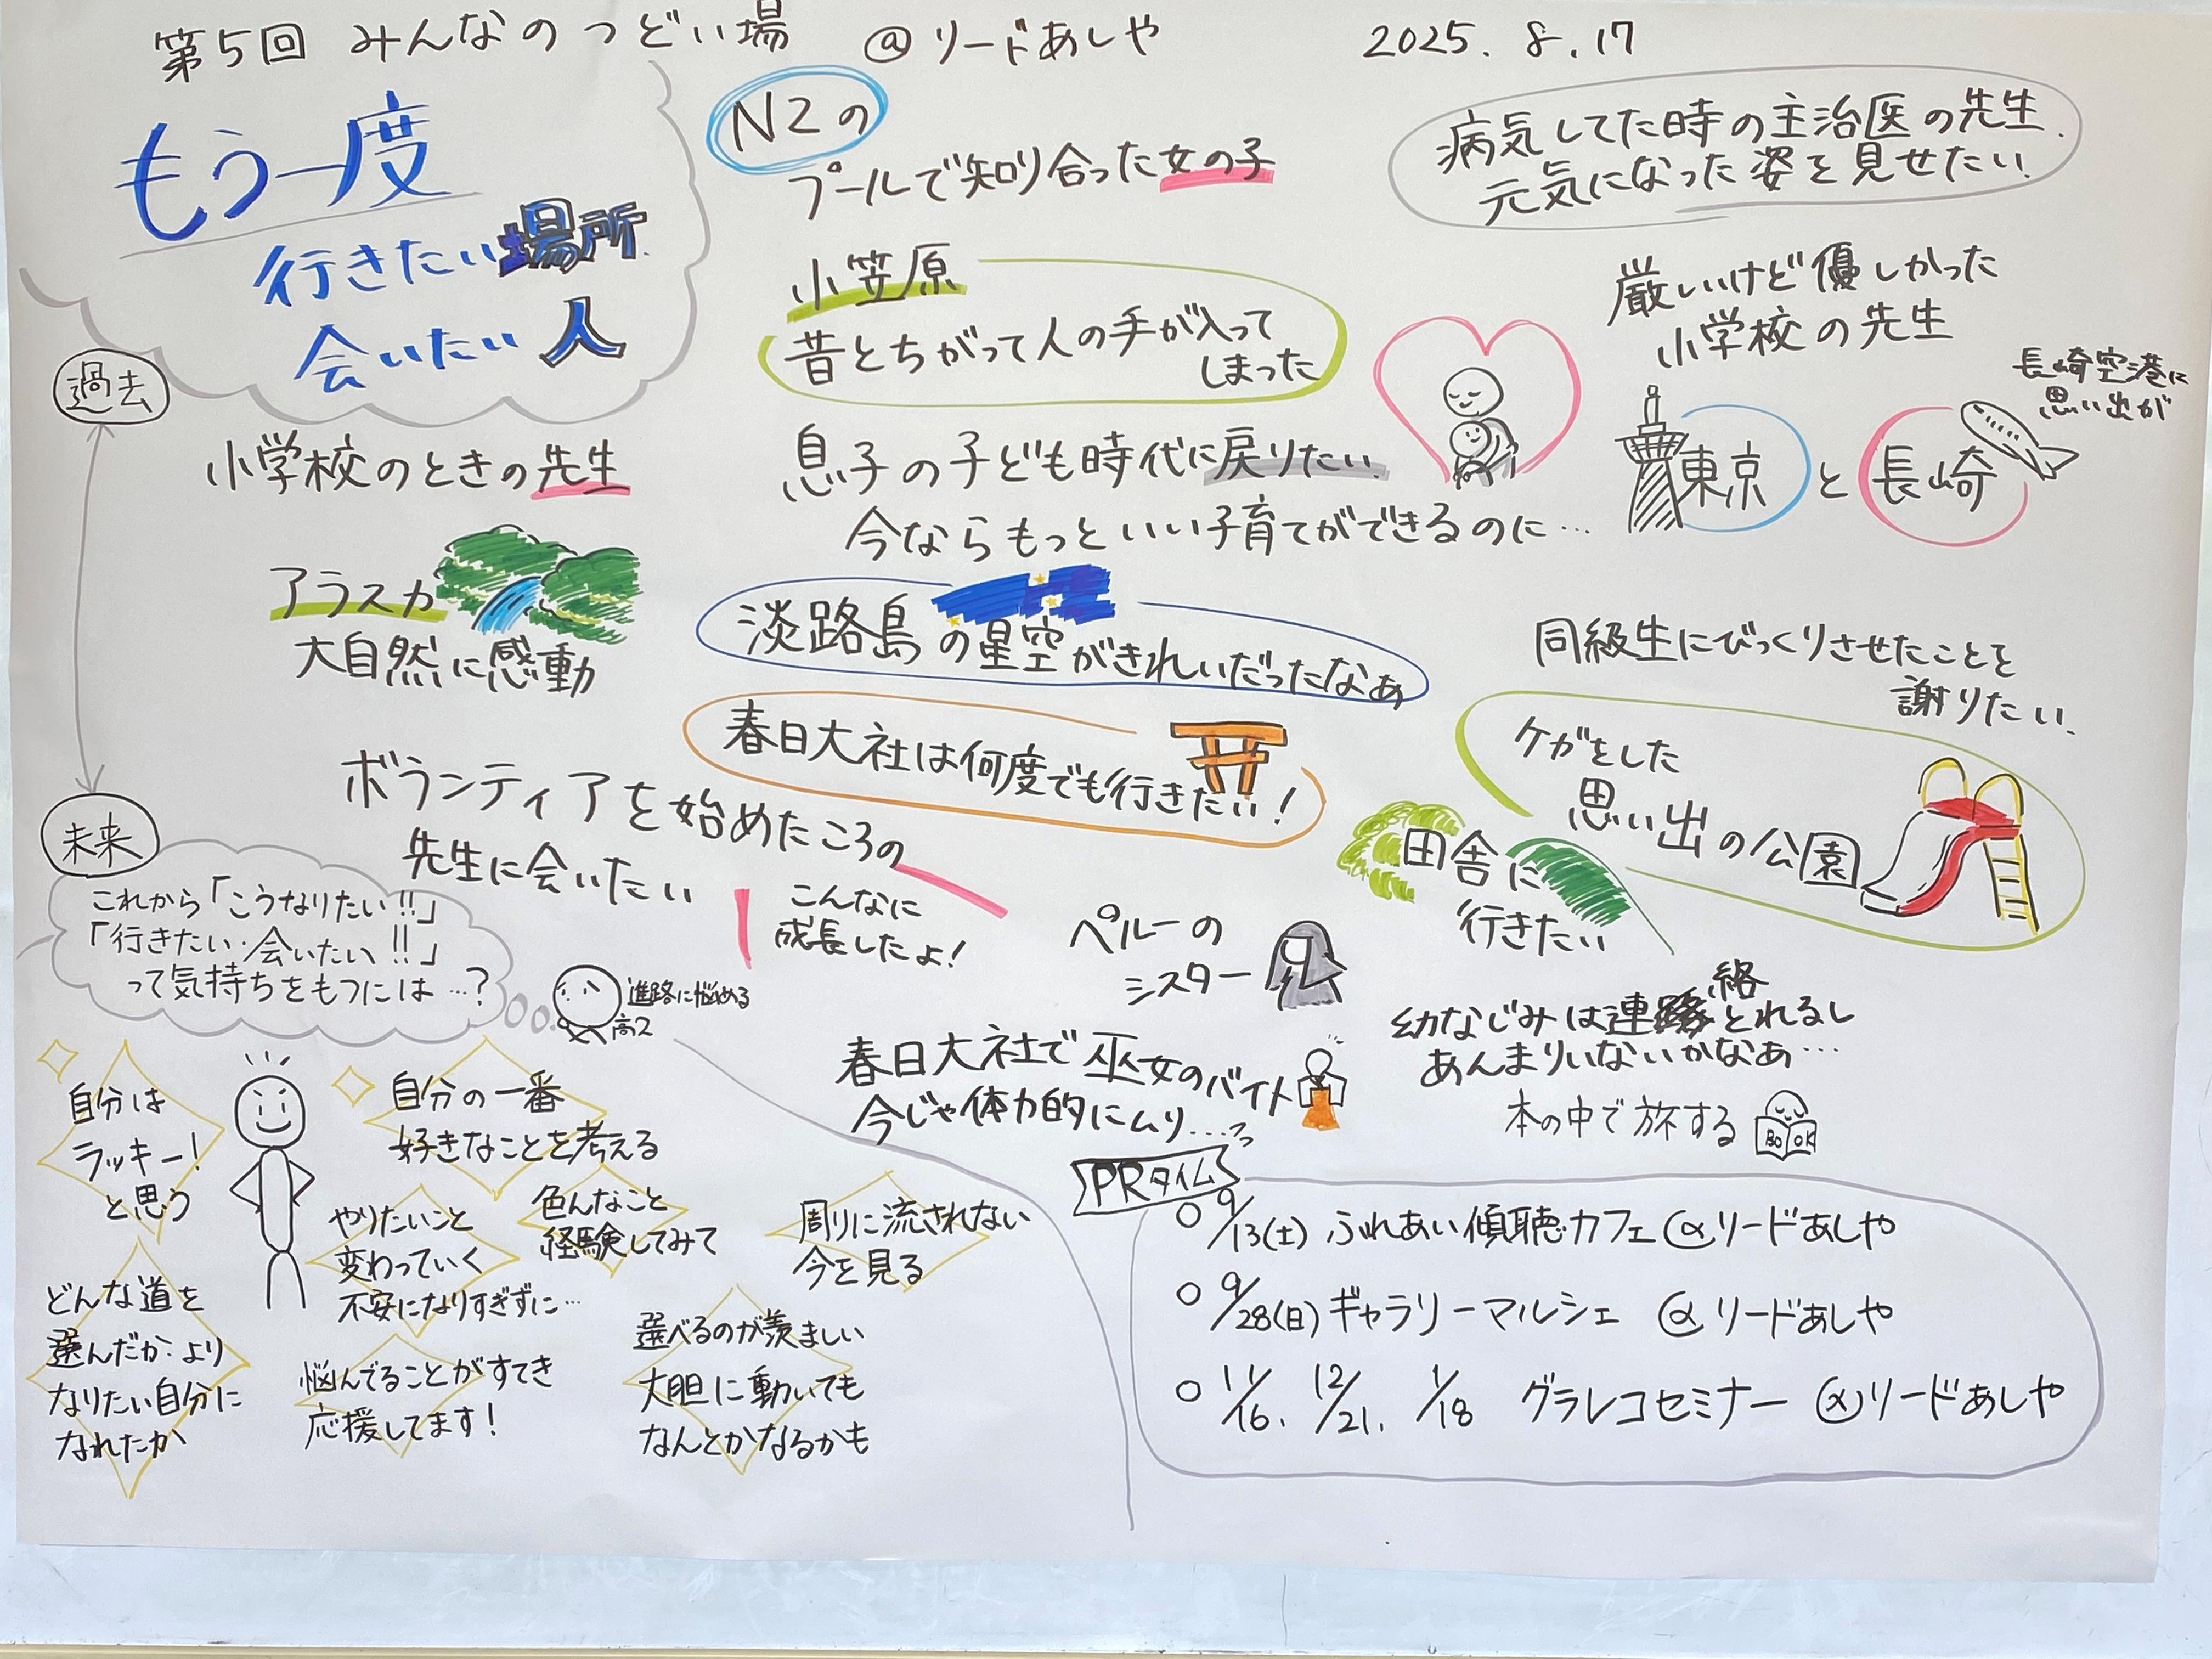 第5回 みんなのつどい場 @リードあしや 2025.8.17
もう一度
行きたい場所
会いたい人
過去
小学校のときの先生
アラスカ
大自然に感動
ボランティアを始めたころの
先生に会いたい
こんなに
成長したよ!
NZの
プールで知り合った女の子
小笠原
昔とちがって人の手が入って
しまった
息子の子ども時代に戻りたい
今ならもっといい子育てができるのに…
淡路島の星空がきれいだったなぁ
春日大社は何度でも行きたい!
ペルーの
シスター
春日大社で巫女のバイト
今じゃ体力的にムリ…
病気してた時の主治医の先生.
元気になった姿を見せたい!
厳しいけど優しかった
小学校の先生
長崎空港に
思い出が
東京と長崎
同級生にびっくりさせたことを
謝りたい.
ケガをした
思い出の公園
田舎に
行きたい
幼なじみは連絡とれるし
あんまりいないかなぁ…
本の中で旅する
BOOK
未来
これから「こうなりたい!!」
「行きたい・会いたい!!」
って気持ちをもつには…?
進路に悩める
高2
自分は
ラッキー!
と思う
自分の一番
好きなことを考える
やりたいこと
変わっていく
不安になりすぎずに…
色んなこと
経験してみて
周りに流されない
今を見る
どんな道を
選んだか より
なりたい自分に
なれたか
悩んでることがすてき
応援してます!
選べるのが羨ましい
大胆に動いても
なんとかなるかも
PRタイム
○ 9/13(土) ふれあい傾聴カフェ @リードあしや
○ 9/28(日) ギャラリーマルシェ @リードあしや
○ 11/16. 12/21. 1/18 グラレコセミナー @リードあしや